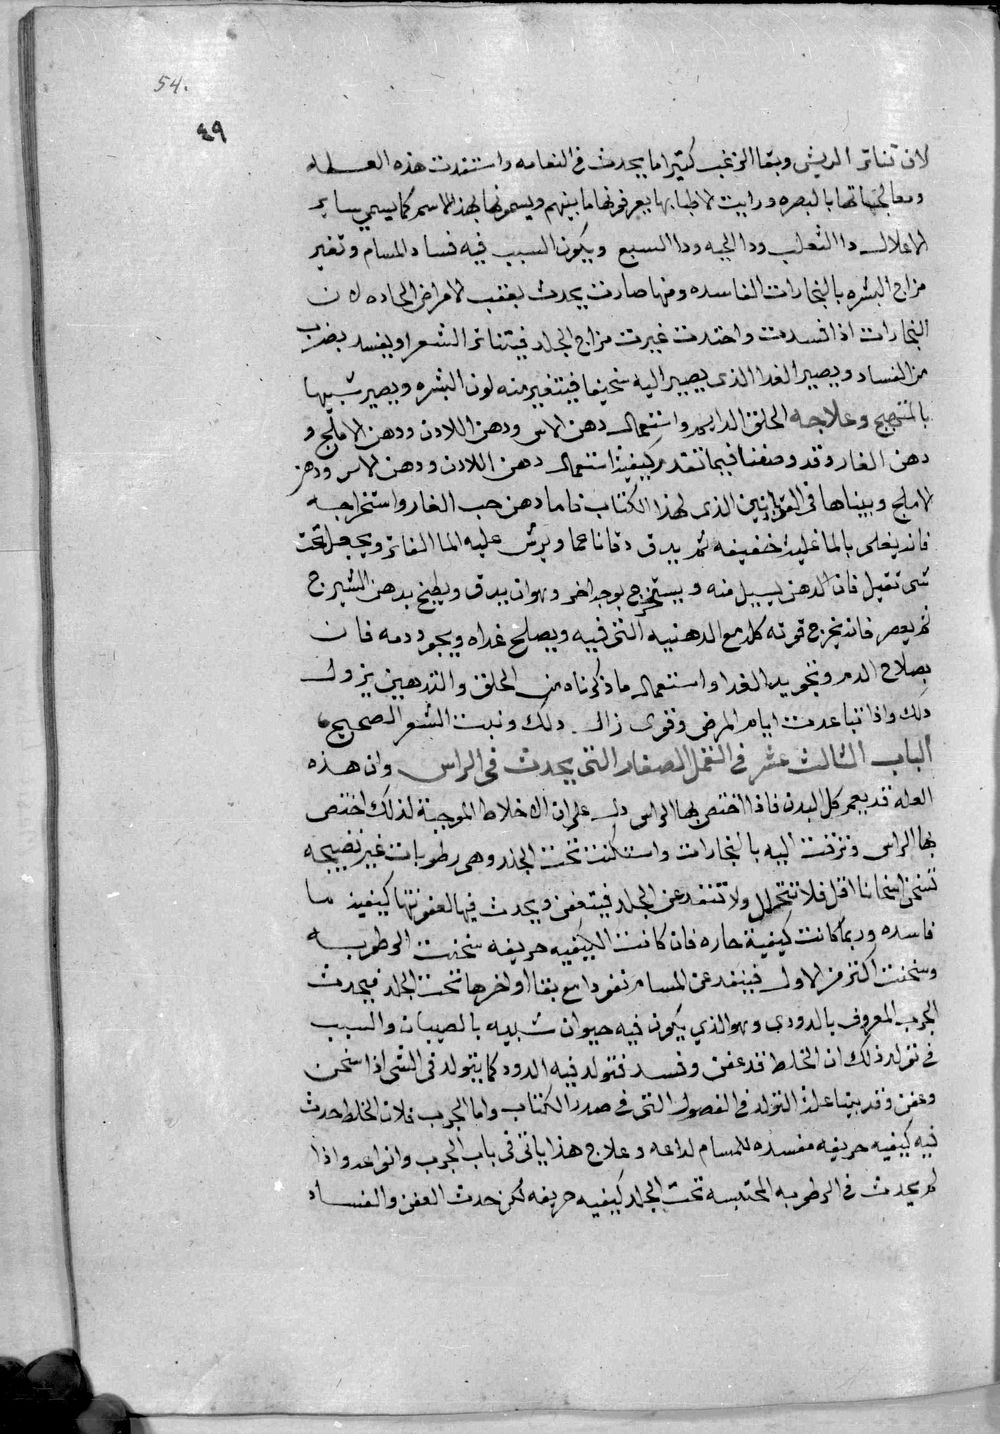 54.
٤٩
لان تناثر الريش وبقا الزغب كثيرا ما يحدث في النعامه واستفدت هذه العله
ومعالجتها بالبصره ورايت الاطبا بها يعرفونها ما بينهم ويسمونها بهذا الاسم كما يسمي ساير
الاعلال دا الثعلب ودا الحيه ودا السبع ويكون السبب فيه فساد المسام وتغير
مزاج البشره بالبخارات الفاسده ومنها صارت يحدث بعقب الامراض الحاده لان
البخارات اذا فسدت واحتدت غيرت مزاج الجلد فيتناثر الشعر او يفسد بضرب
من الفساد ويصير الغدا الذي يصير اليه سخيفا فيتغير منه لون البشره ويصير شبيها
بالمتهيج وعلاجه الحلق الدايم واستعمال دهن الاس ودهن اللادن ودهن الاملج و
دهن الغار وقد وصفنا فيما تقدم كيفية استعمال دهن اللادن ودهن الاس ودهن
الاملج وبيناها في القرابادين الذي لهذا الكتاب فاما دهن حب الغار واستخراجه
فانه يغلى بالما غلية خفيفه ثم يدق دقا ناعما ويرش عليه الما الفاتر ويجعل تحت
شى ثقيل فان الدهن يسيل منه ويستخرج بوجه اخر وهو ان يدق ويطبخ بدهن الشيرج
ثم يعصر فانه يخرج قوته كله مع الدهنيه التى فيه ويصلح غداه ويجود دمه فان
بصلاح الدم وتجويد الغدا واستعمال ما ذكرناه من الحلق والتدهين يزول
ذلك واذا تباعدت ايام المرض وقوى زال ذلك ونبت الشعر الصحيح
الباب الثالث عشر فى القمل الصغار التى يحدث فى الراس وان هذه
العله قد يعم كل البدن فاذا اختص بها الراس دل على ان الاخلاط الموجبة لذلك اختص
بها الراس وترقت اليه بالبخارات واستكنت تحت الجلد وهى رطوبات غير نضيجه
تسخن اسخانا اقل فلا تتحلل ولا تنفد عن الجلد فيتعفن ويحدث فيها لعفونتها كيفية ما
فاسده وربما كانت كيفية حاره فان كانت الكيفيه حريفه سخنت الرطوبه
وسخنت اكثر من الاول فينفد عن المسام نفودا مع بقا اواخرها تحت الجلد فيحدث
الجرب المعروف بالدودى وهو الذي يكون فيه حيوان شبيه بالصيبان والسبب
فى تولد ذلك ان الخلط قد عفن وفسد فتولد فيه الدود كما يتولد فى الشى اذا سخن
وعفن وقد بينا علة التولد فى الفصول التى فى صدر الكتاب واما الجرب فلان الخلط حدث
فيه كيفيه حريفه مفسده للمسام لداعه وعلاج هذا ياتى فى باب الجرب وانواعه واذا
لم يحدث فى الرطوبه المحتبسه تحت الجلد كيفيه حريفه لكن حدث العفن والفساد